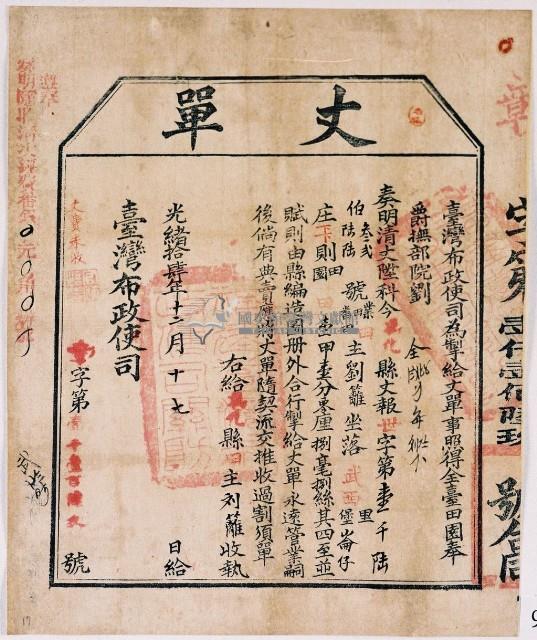 丈單
臺灣布政使司為掣給丈單事照得全臺田園奉
爵撫部院劉
奏明清丈陞科今彰化縣丈報世字第壹千陸
伯陸陸叁貳號業主劉籬坐落武西堡里崙仔
庄下則田園壹甲壹分零厘捌毫捌絲其四至並
賦則由縣編造圖册外合行掣給丈單永遠管業嗣
後倘有典賣應將丈單隨契流交推收過割須單
右給彰化縣業主刘籬收執
光緒拾肆年十二月十七日給
臺灣布政使司
字第壹千壹百陸玖號
字第壹仟壹佰陸玖號
丈費未收